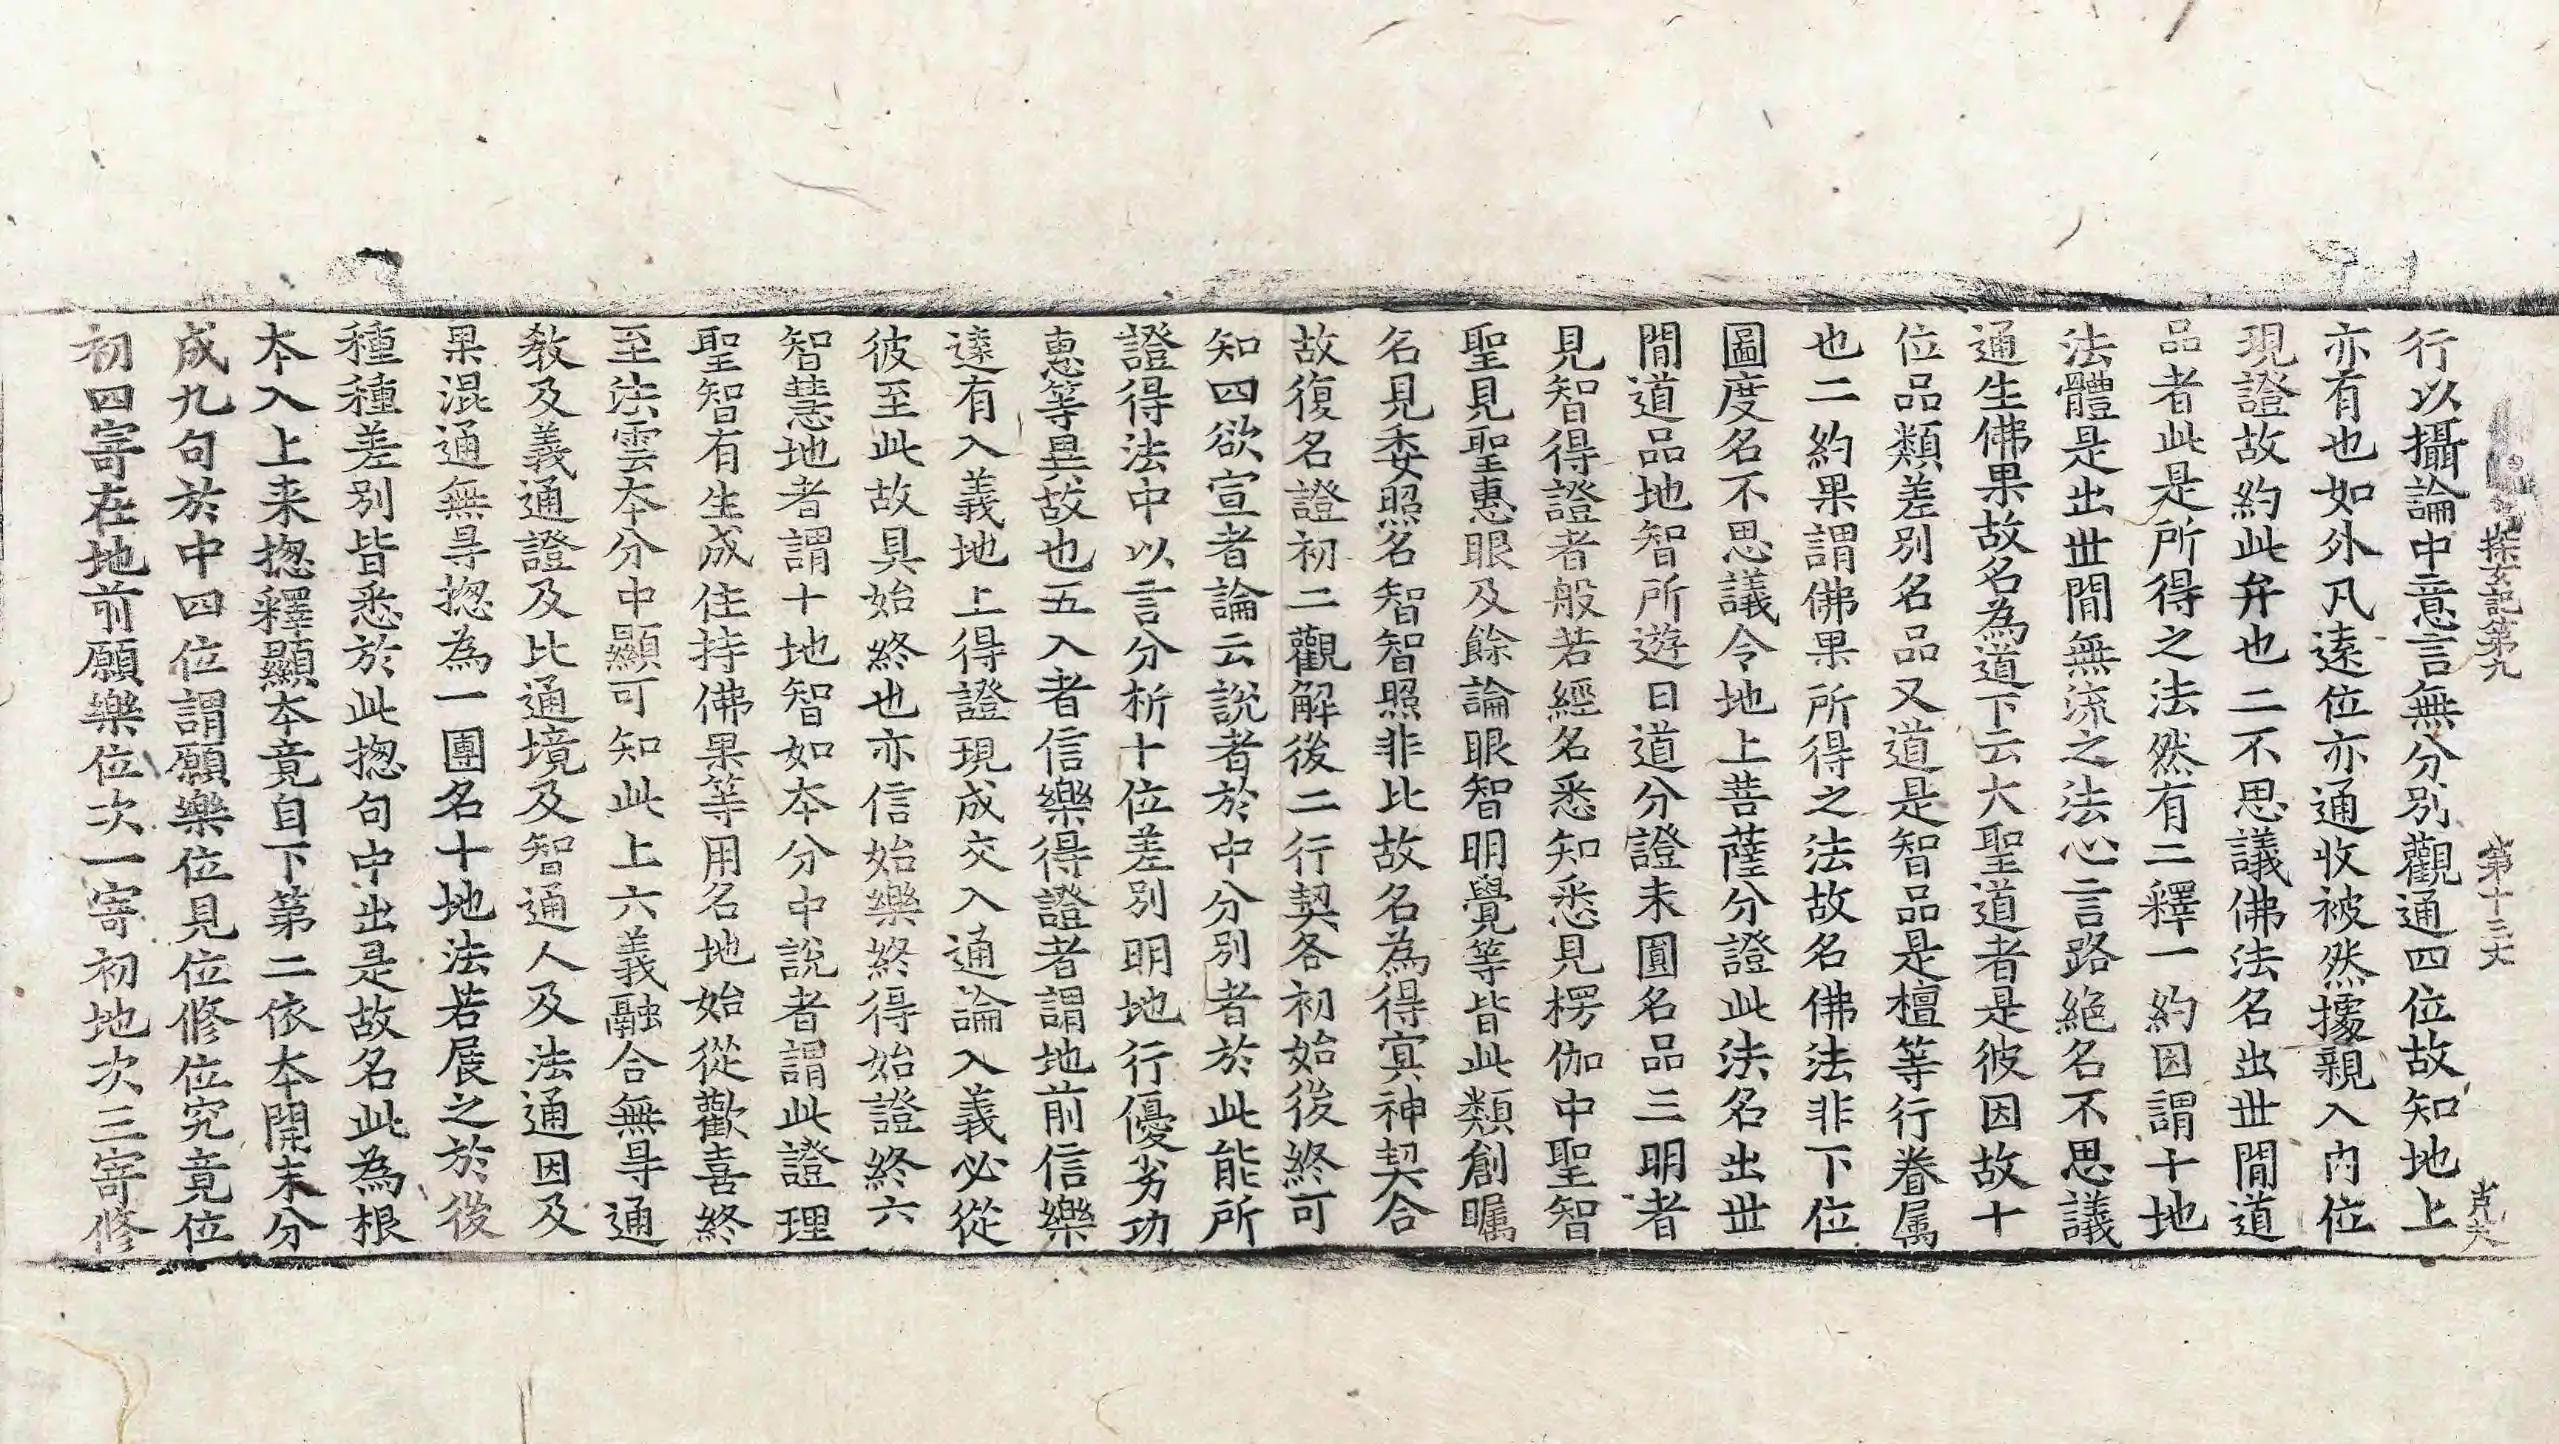 探玄記第九 第十三丈 肖夫
行以攝論中意言無分別觀通四位故知地上
亦有也如外凡遠位亦通收被然據親入內位
現證故約此弁也二不思議佛法名出世閒道
品者此是所得之法然有二釋一約因謂十地
法體是出世閒無流之法心言路絕名不思議
通生佛果故名為道下云大聖道者是彼因故十
位品類差別名品又道是智品是檀等行眷属
也二約果謂佛果所得之法故名佛法非下位
圖度名不思議令地上菩薩分證此法名出世
閒道品地智所遊曰道分證未圓名品三明者
見智得證者般若經名悉知悉見楞伽中聖智
聖見聖惠眼及餘論眼智明覺等皆此類創矚
名見委照名智智照非比故名為得冥神契合
故復名證初二觀解後二行契各初始後終可
知四欲宣者論云說者於中分別者於此能所
證得法中以言分析十位差別明地行優劣功
惠等異故也五入者信樂得證者謂地前信樂
遠有入義地上得證現成交入通論入義必從
彼至此故具始終也亦信始樂終得始證終六
智慧地者謂十地智如本分中說者謂此證理
聖智有生成住持佛果等用名地始從歡喜終
至法雲本分中顯可知此上六義融合無㝵通
教及義通證及比通境及智通人及法通因及
果混通無㝵揔為一團名十地法若展之於後
種種差別皆悉於此揔句中出是故名此為根
本入上来揔釋顯本竟自下第二依本開末分
成九句於中四位謂願樂位見位修位究竟位
初四寄在地前願樂位次一寄初地次三寄修